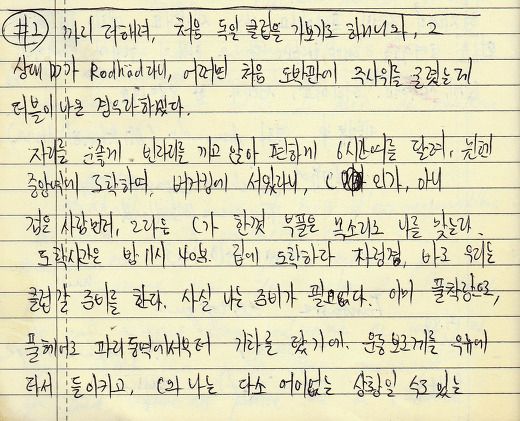 #2 까리 더해려, 처음 독일 클럽을 가보기로 하니니와, 2
상대 DJ가 Rodhad라니, 어쩌면 처음 도박판에 주사위를 굴렸는데
더블이 나온 경우라하겠다.
자리를 운좋게 빈자리를 끼고 앉아 편하게 6시간여를 달려, 뮌헨
중앙역에 도착하며, 버거킹에 서있자니, C 인가, 아니
검은 사람인데, 2라는 C가 한껏 부풀은 목소리로 나를 맞는다.
도착시간은 밤 11시 40분. 집에 도착하다 차링겸, 바로 우리는
클럽갈 준비를 한다. 사실 나는 준비가 필요없다. 이미 풀착장으로,
풀헤어로 파리동역에서부터 기차를 탔기에. 운동보르게를 우유에
타서 들이키고, C와 나는 다소 어이없는 상황일 수도 있는